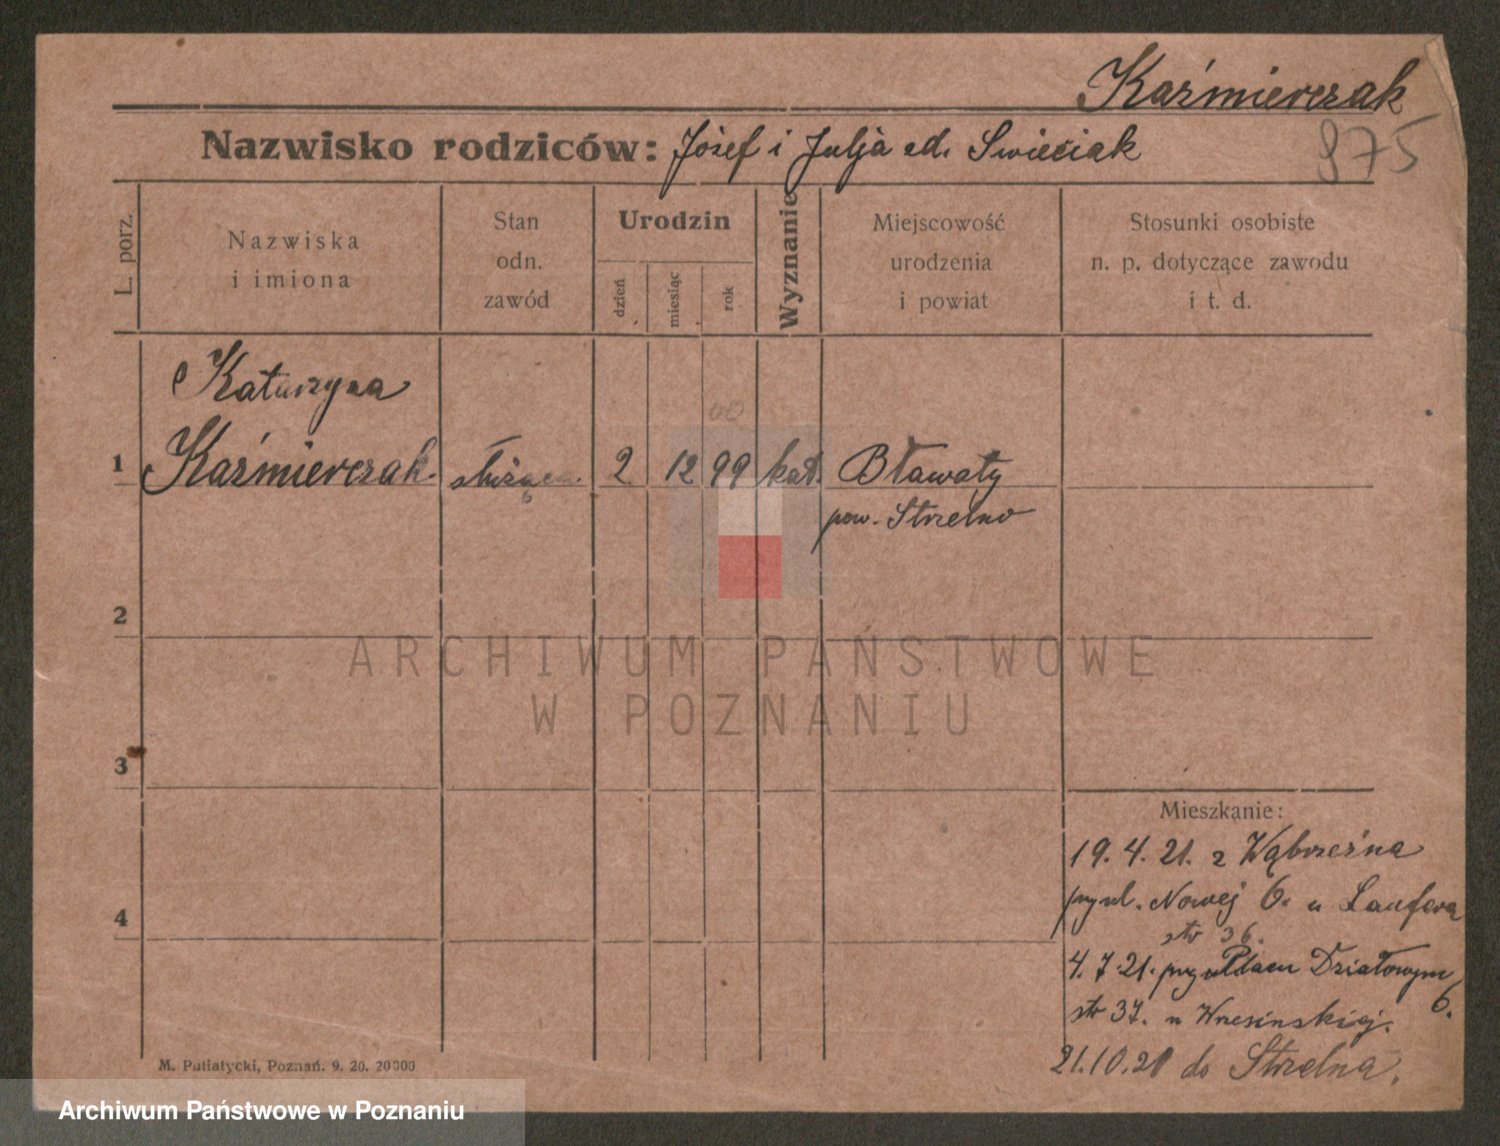 Kaźmierczak
975
Nazwisko rodziców: Józef i Julja ed. Swieciak
L. porz.
Nazwiska
i imiona
Stan
odn.
zawód
Urodzin
dzień
miesiąc
rok
Wyznanie
Miejscowość
urodzenia
i powiat
Stosunki osobiste
n. p. dotyczące zawodu
i t. d.
Katarzyna
00
1 Kaźmierczak. służąca. 2 12 99 kat. Bławaty
pow. Strzelno
2
ARCHIWUM PAŃSTWOWE
W POZNANIU
3
Mieszkanie:
19. 4. 21. z Wąbrzeźna
przy ul. Nowej 6. u Laufera
str 36.
4
4. 7. 21. przy Placu Działowym 6.
str 37. u Wrzesińskiej.
21.10.21 do Strzelna.
M. Putiatycki, Poznań. 9. 20. 20000
Archiwum Państwowe w Poznaniu